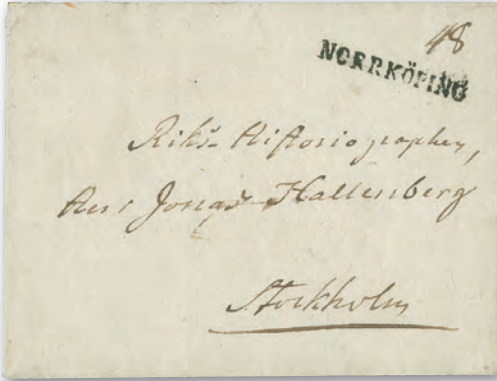 48
NORRKÖPING
Riks-Historiographen,
Herr Jonas Hallenberg
Stockholm